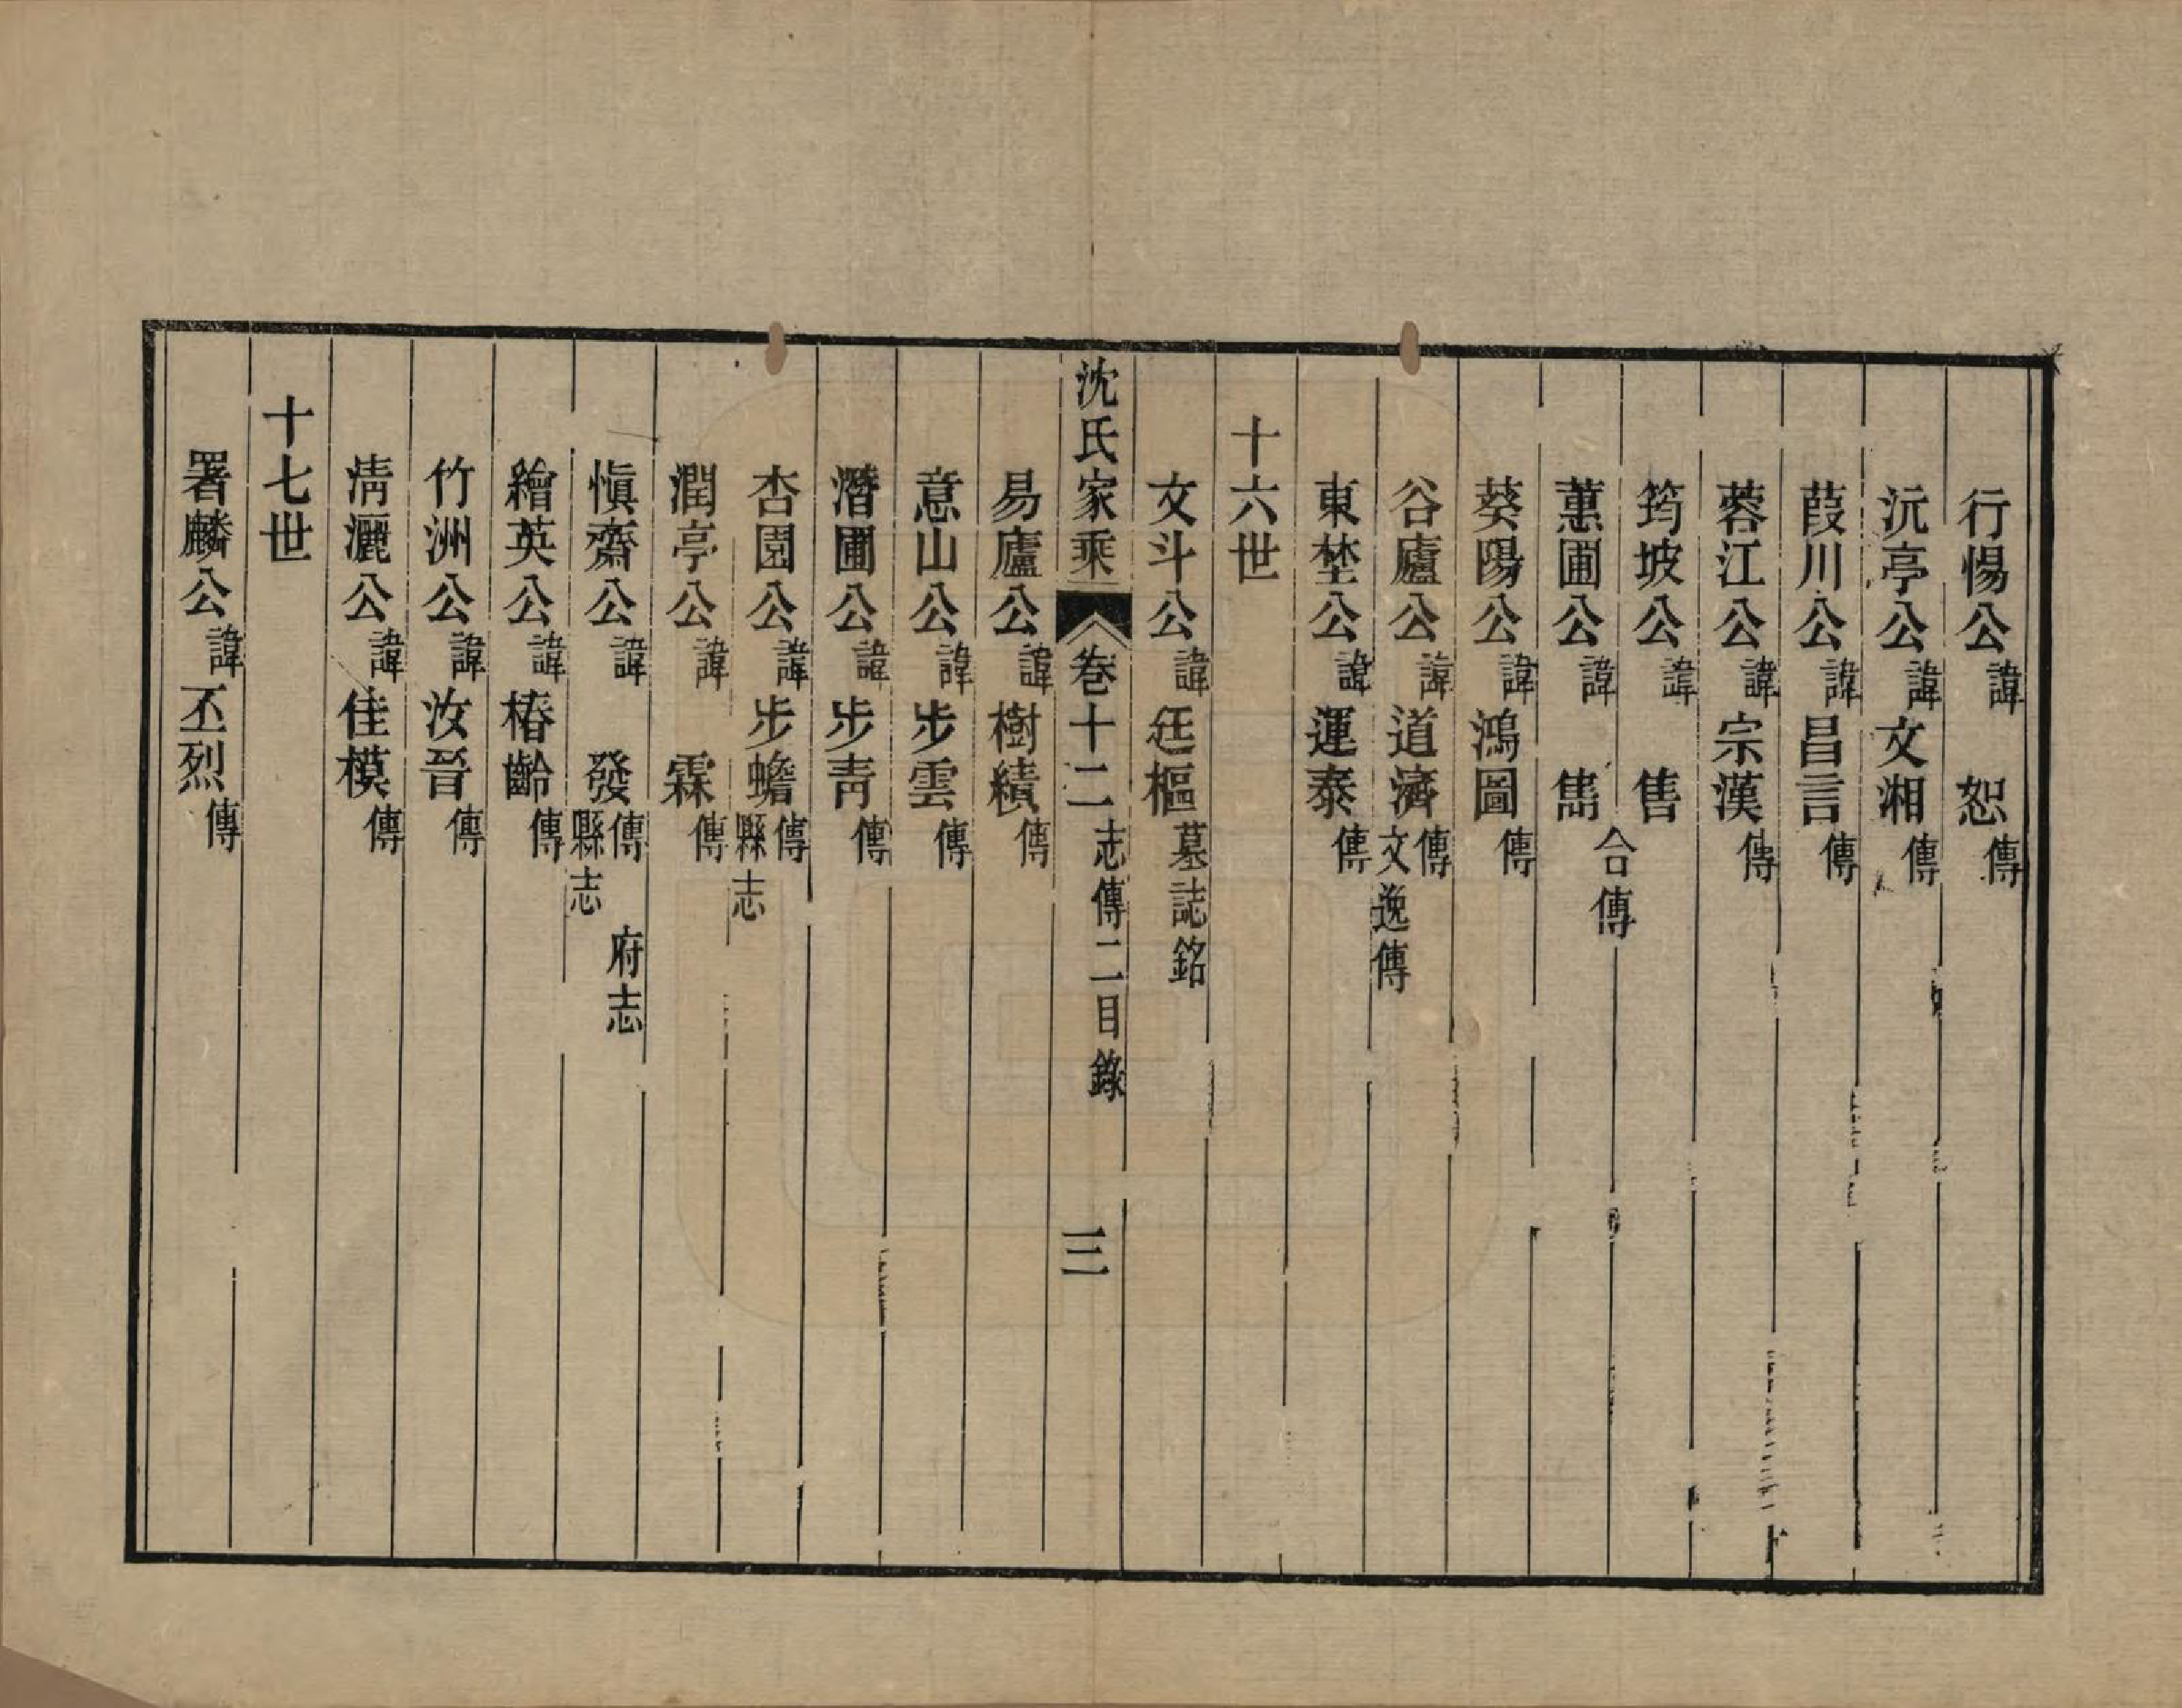 行惕公諱　恕傳
沅亭公諱文湘傳
葭川公諱昌言傳
蓉江公諱宗漢傳
筠坡公諱　售
蕙圃公諱　雋
合傳
葵陽公諱鴻圖傳
谷廬公諱道濟傳
文逸傳
東埜公諱運泰傳
十六世
文斗公諱廷樞墓誌銘
沈氏家乘　卷十二志傳二目錄　三
易廬公諱樹績傳
意山公諱步雲傳
潛圃公諱步青傳
杏園公諱步蟾傳
縣志
潤亭公諱　霖傳
愼齋公諱　發傳　府志
縣志
繪英公諱椿齡傳
竹洲公諱汝晉傳
清灑公諱佳模傳
十七世
署麟公諱丕烈傳